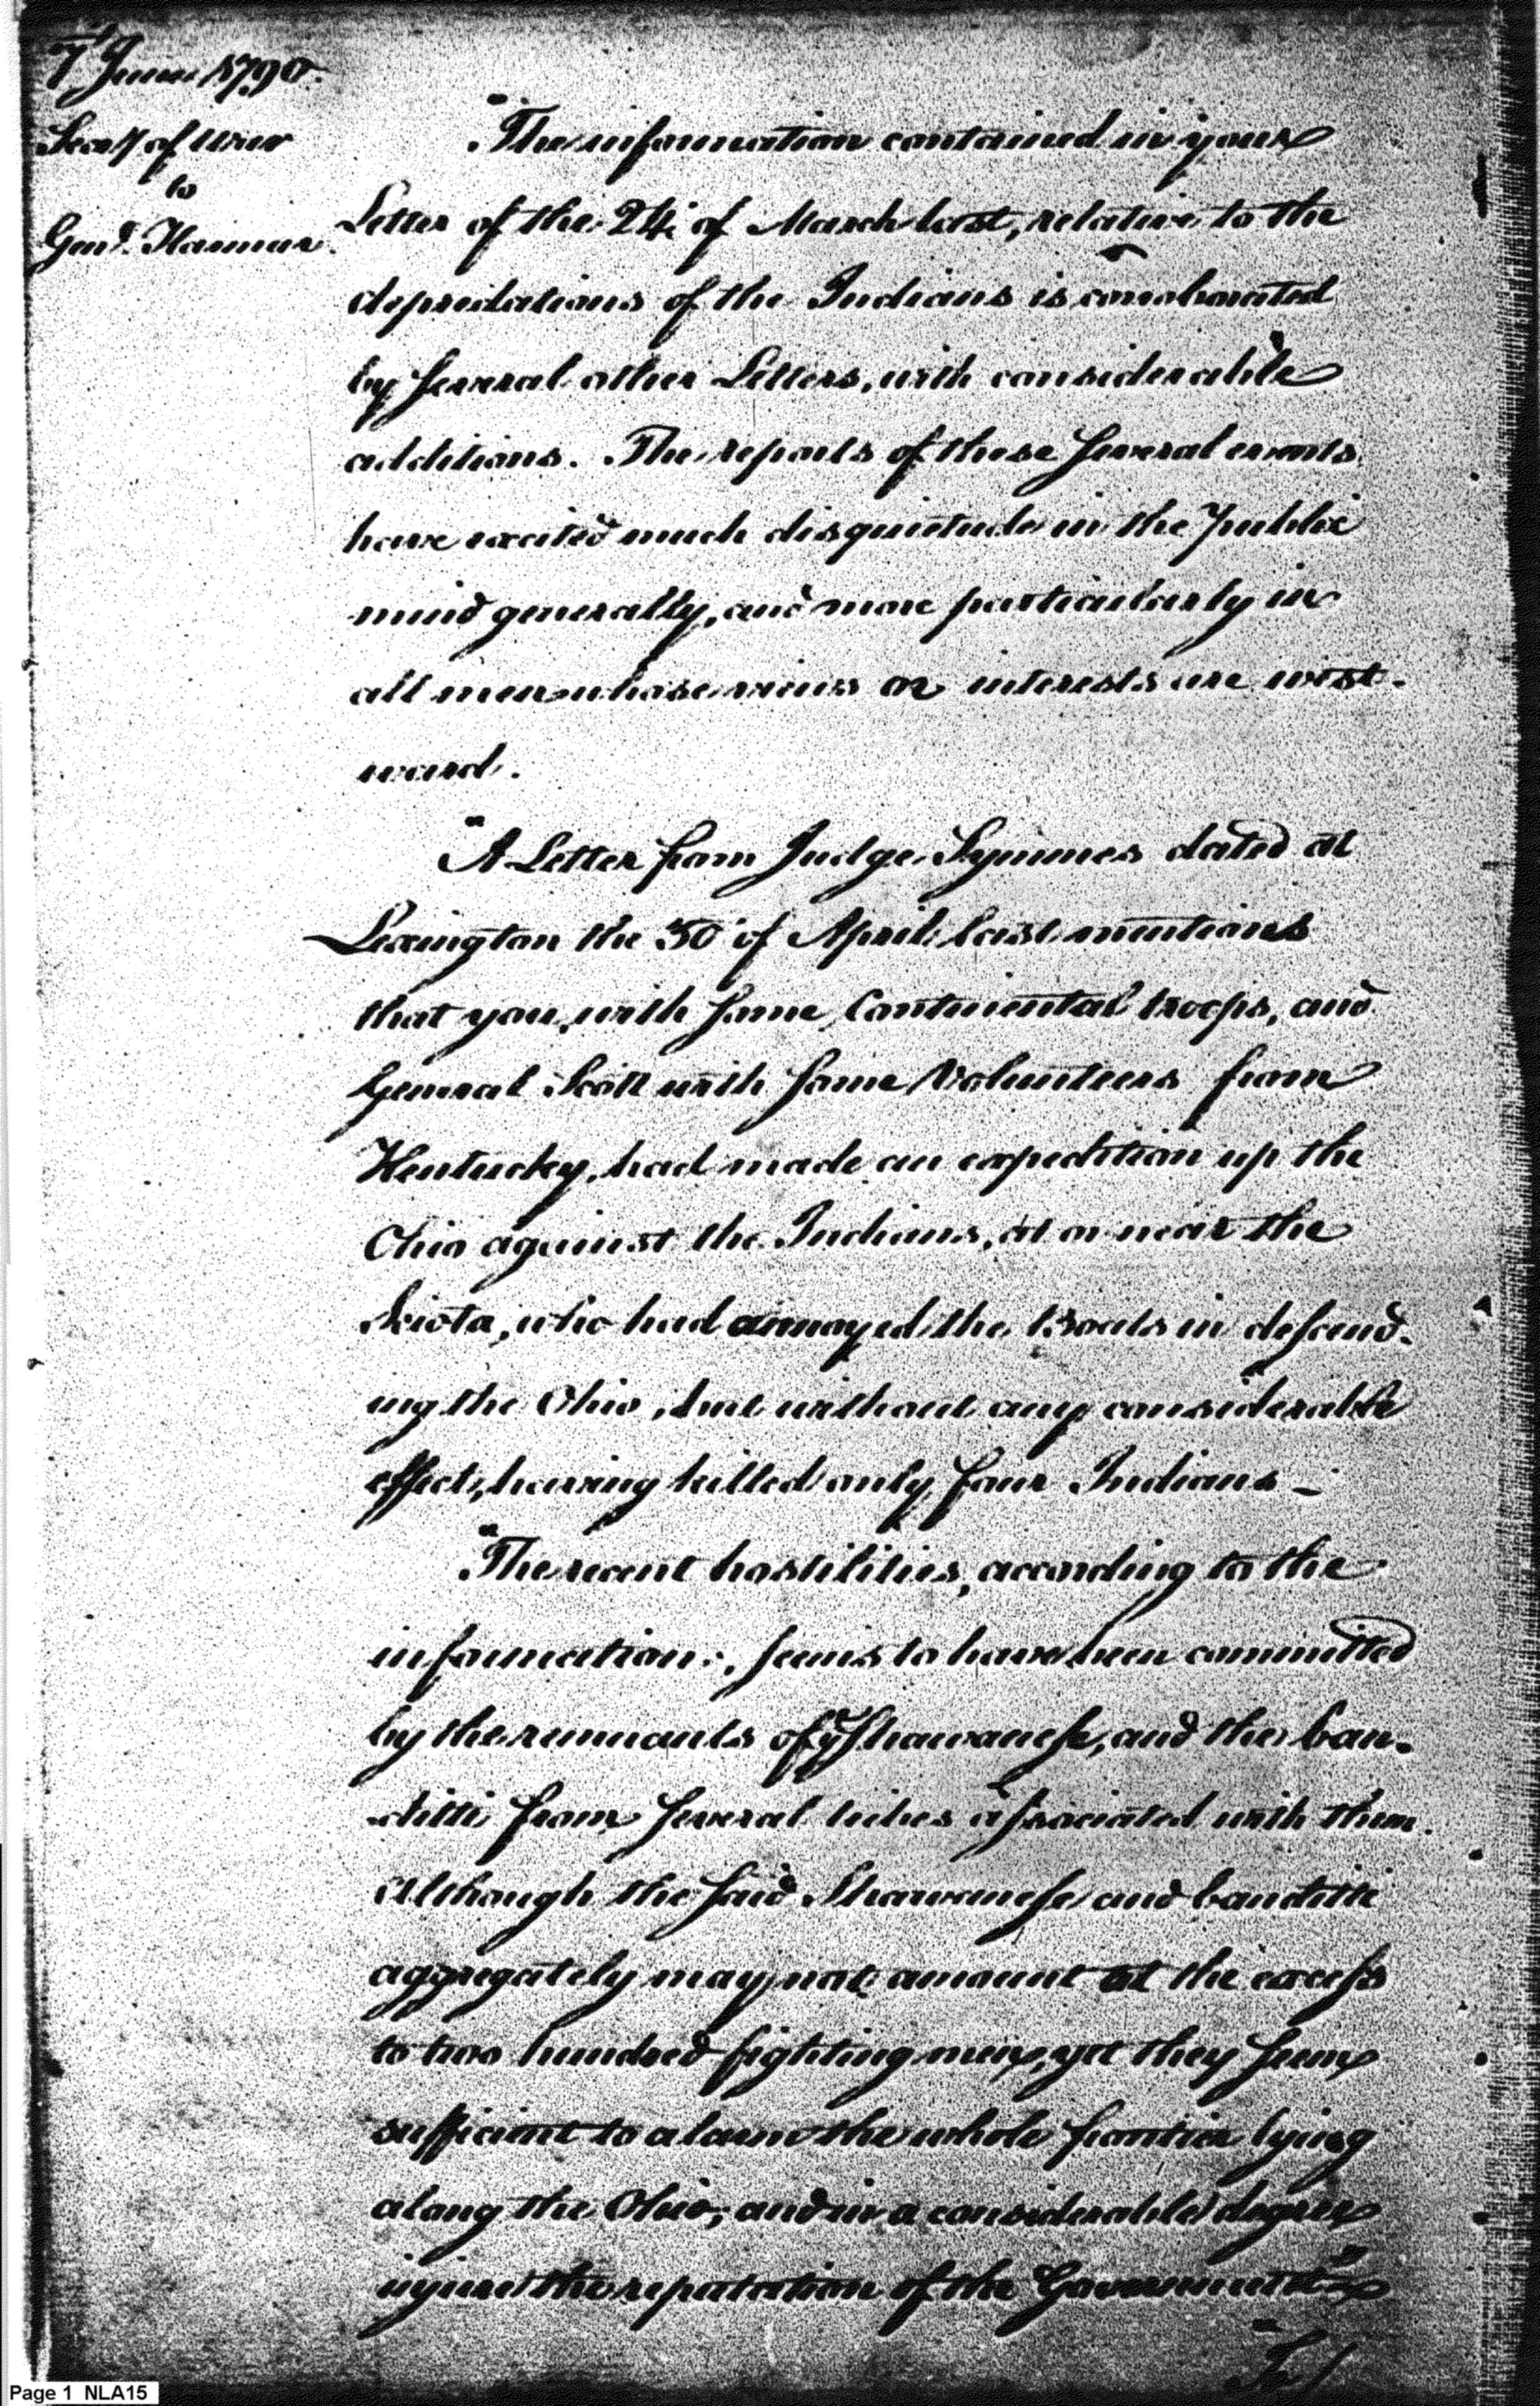 7 June 1790.
Secy of War
to
Genl. Harmar.
"The information contained in your
Letter of the 24. of March last, relative to the
depredations of the Indians is corroborated
by several other Letters, with considerable
additions. The reports of these several events
have excited much disquietude in the public
mind generally, and more particularly in
all men whose views or interests are west-
ward.
"A Letter from Judge Symmes dated at
Lexington the 30 of April last mentions
that you, with some Continental troops, and
General Scott with some Volunteers from
Kentucky, had made an expedition up the
Ohio against the Indians, at or near the
Sciota, who had annoyed the Boats in descend-
ing the Ohio, but without any considerable
effect, having killed only four Indians –
"The recent hostilities, according to the
information, seems to have been committed
by the remnants of ye Shawanese, and the ban-
ditti from several tribes associated with them.
Although the said Shawanese and banditti
aggregately may not amount at the excess
to two hundred fighting men, yet they seem
sufficient to alarm the whole frontier lying
along the Ohio; and in a considerable degree
injure the reputation of the Government"